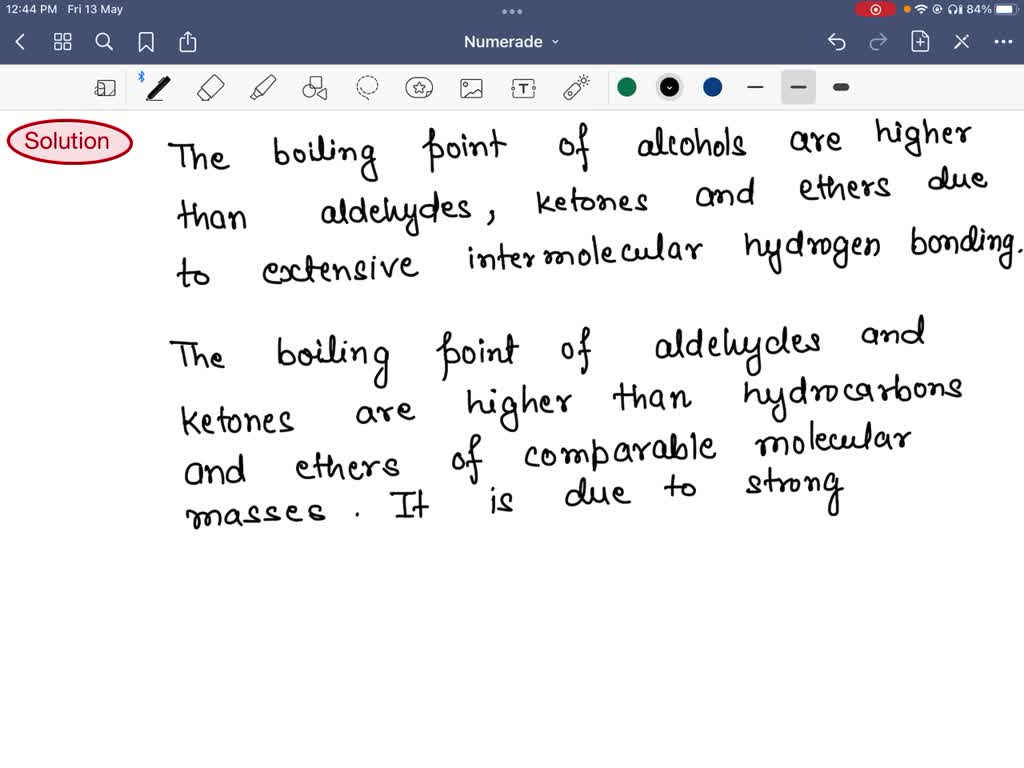 12:44 PM Fri 13 May
84%
Numerade
T
Solution
The boiling point of alcohols are higher
than aldehydes, ketones and ethers due
to extensive intermolecular hydrogen bonding.
The boiling point of aldehydes and
ketones are higher than hydrocarbons
and ethers of comparable molecular
masses. It is due to strong